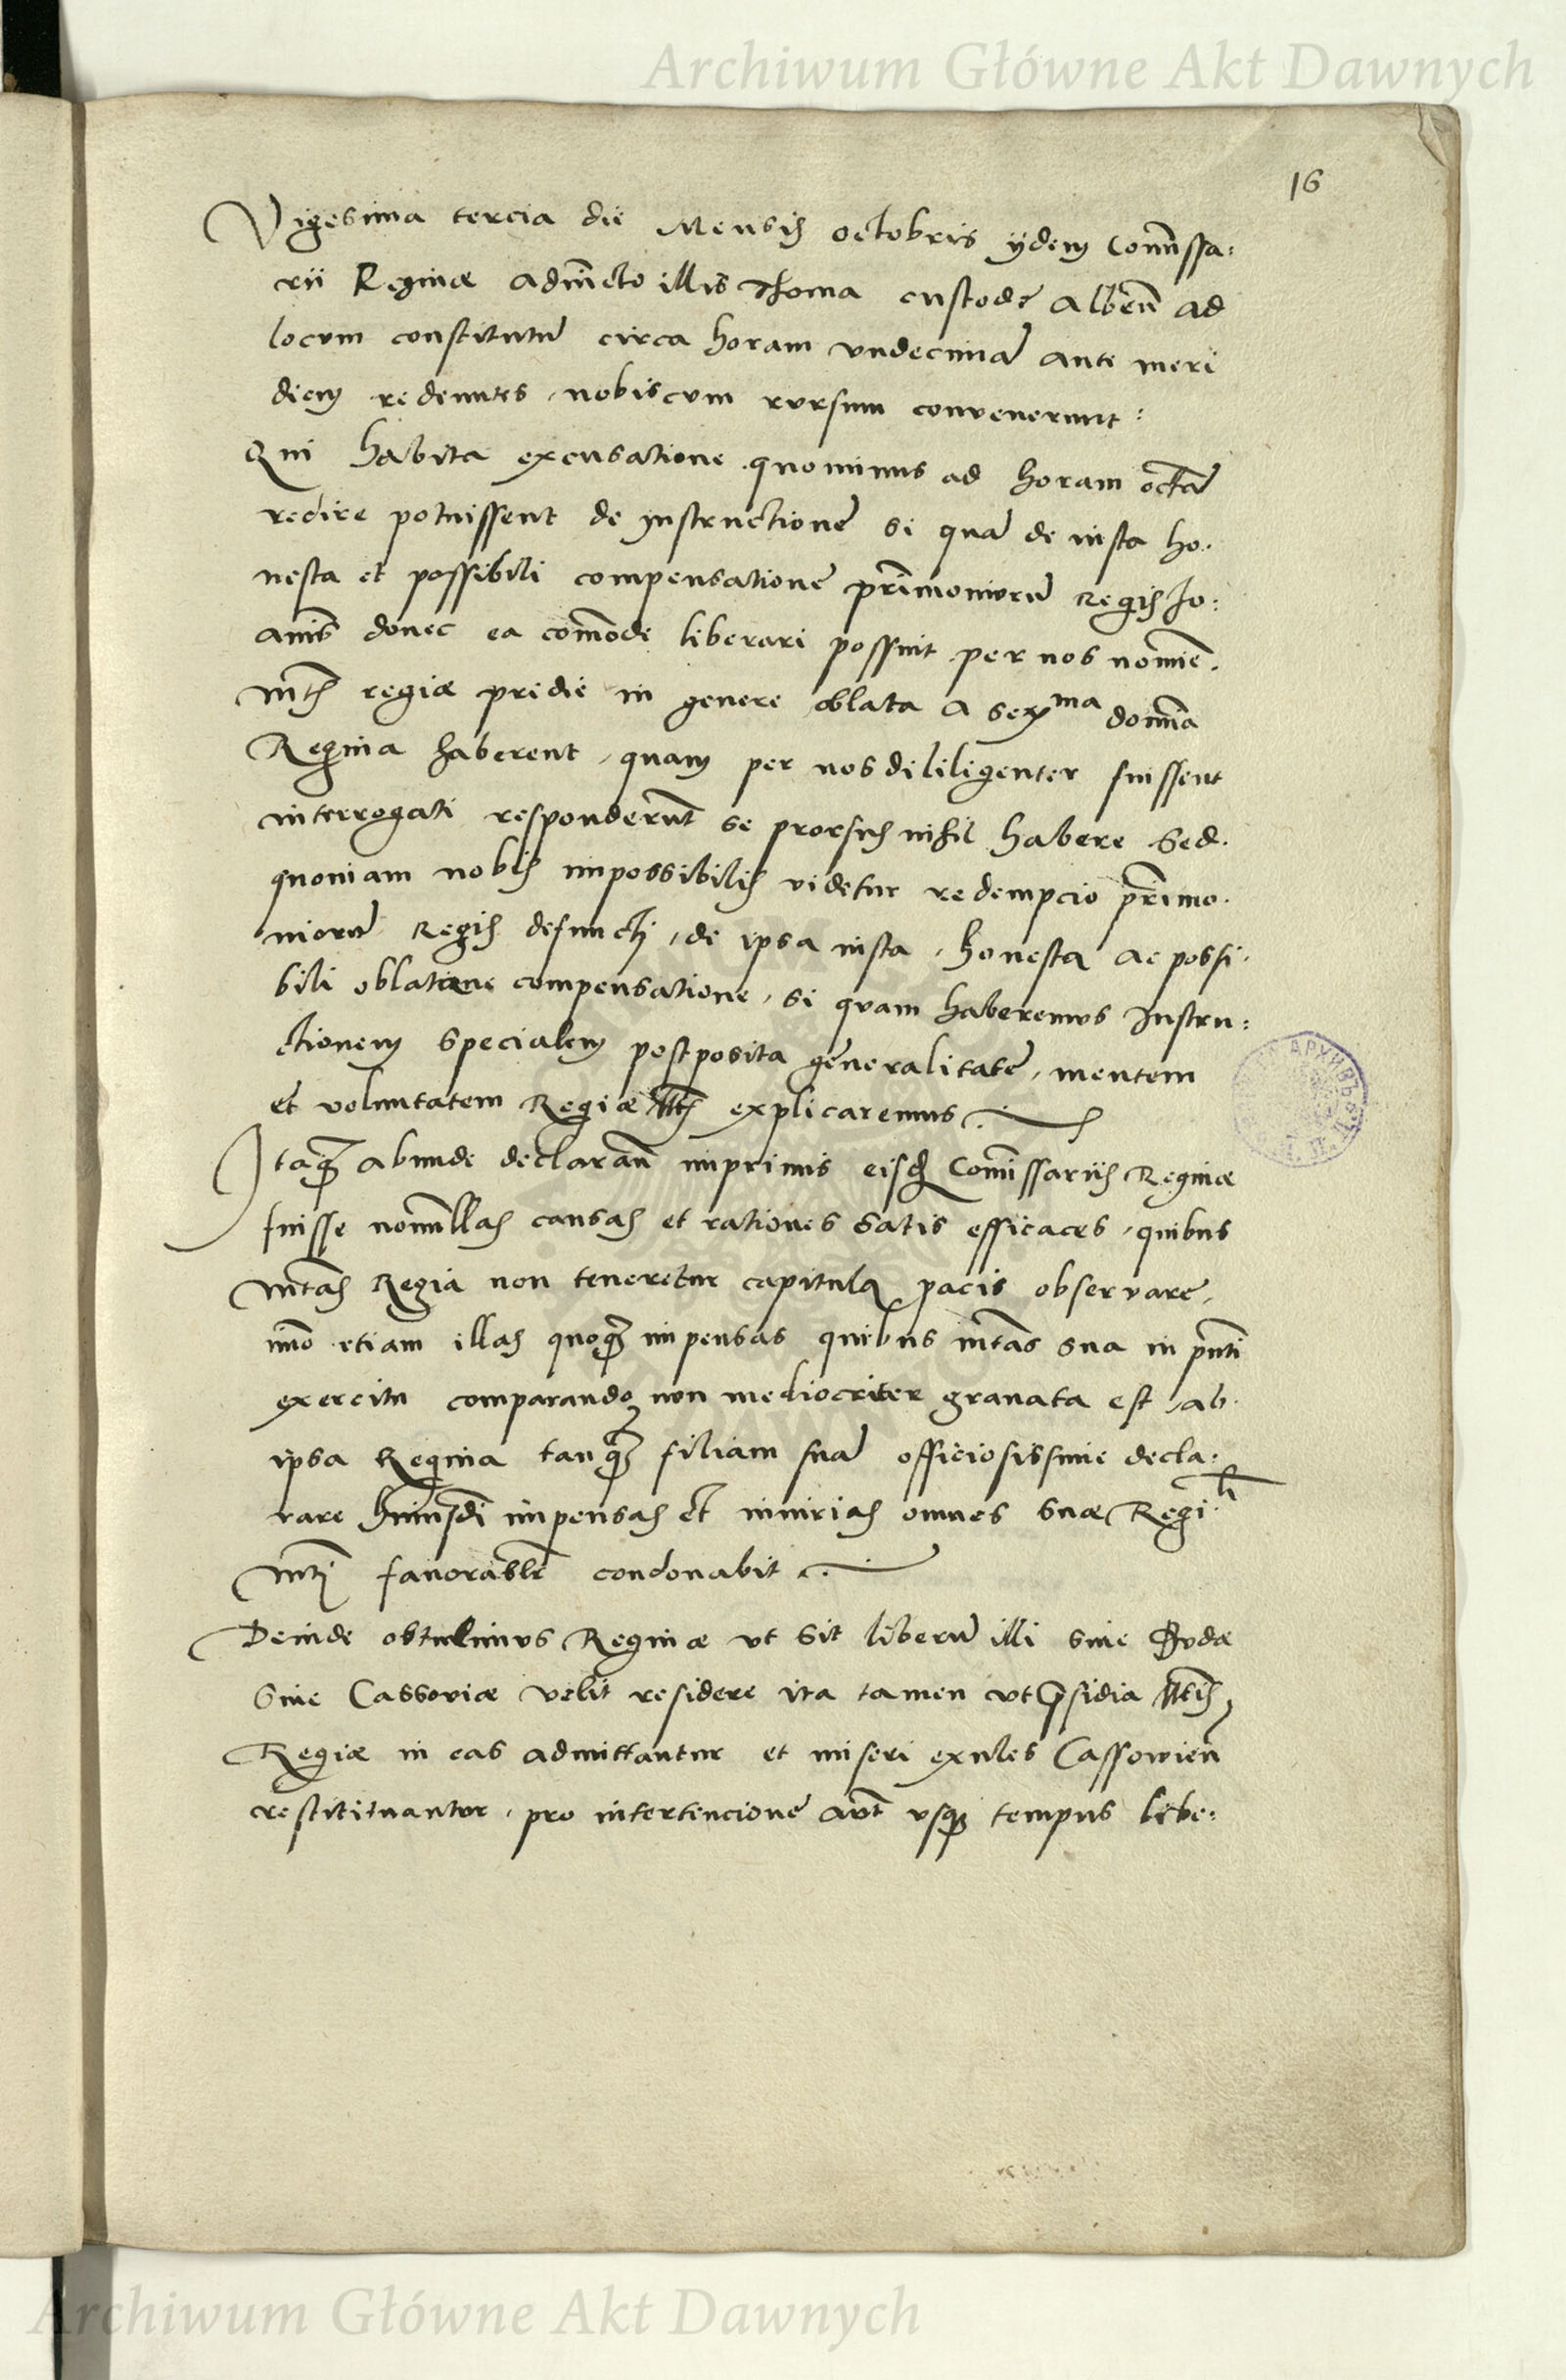 Archiwum Główne Akt Dawnych
16
Vigesima tercia die Mensis octobris ijdem Com̄issa:
rii Reginæ adiūcto illis Thoma custode Albeñ ad
locum constitutū circa horam undecimā ante meri
diem redeuntes, nobiscum rursum convenerunt:
Qui habita excusatione quominus ad horam octā
redire potuissent de instructionē si quā de iusta ho.
nesta et possibili compensationē pr̄imoniorū Regis Jo:
anīs donec ea com̄ode liberari possint per nos nomīe.
m̄tis regiæ pridie in genere oblata a serma domīa
Regina haberent, quam per nos dililigenter fuissent
interrogati responderūt se prorsus nihil habere Sed.
quoniam nobis impossibilis videtur redempcio pr̄imo.
niorū Regis defuncti, de ipsa iusta, honesta ac possi.
bili oblatione compensatione, si quam haberemus Instru:
ctionem specialem postposita generalitate, mentem
et voluntatem Regiæ Mtis explicaremus
Itaq̄ abunde declarauī inprimis eisd Com̄issariis Reginæ
fuisse nonnūllas causas et rationes satis efficaces, quibus
m̄tas Regia non teneretur capitula pacis observare,
im̄o etiam illas quoq̄ impensas quibus m̄tas sua in pn̄ti
exercitu comparando non mediocriter gravata est, ab.
ipsa Regina tanq̄ filiam suā officiosissime decla:
rare huiusdi impensas et iniurias omnes suæ Regi.li
m̄ti favorablr condonabit
Deinde obtulimus Reginæ ut sit liberū illi sive Budæ
sive Cassoviæ velit residere ita tamen ut p̄sidia Mtis
Regiæ in eas admittantur et miseri exules Cassovieñ
restitituantur, pro intertencione aūt usq tempus libe:
Archiwum Główne Akt Dawnych